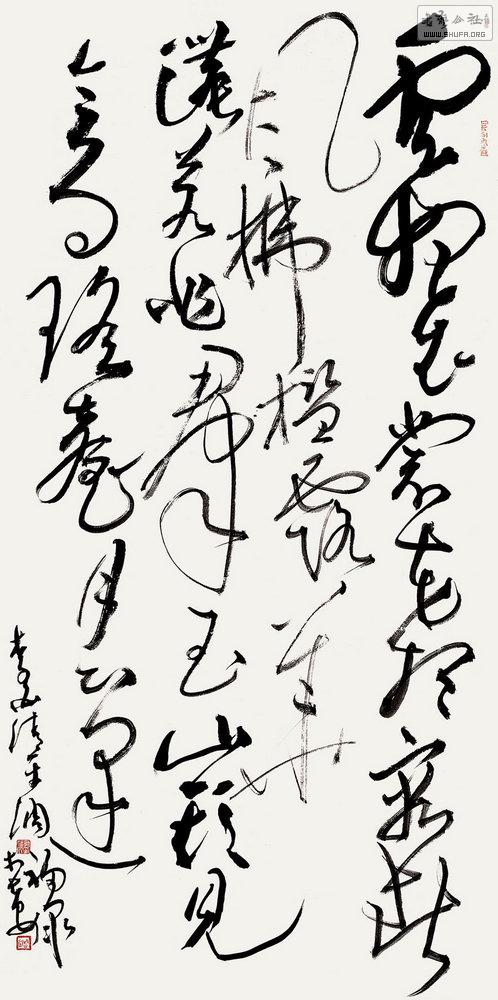 雲想衣裳花想容春
風拂檻露華
濃若非群玉山頭見
會向瑤臺月下逢
李白清平調
書法公社
WWW.SHUFA.ORG